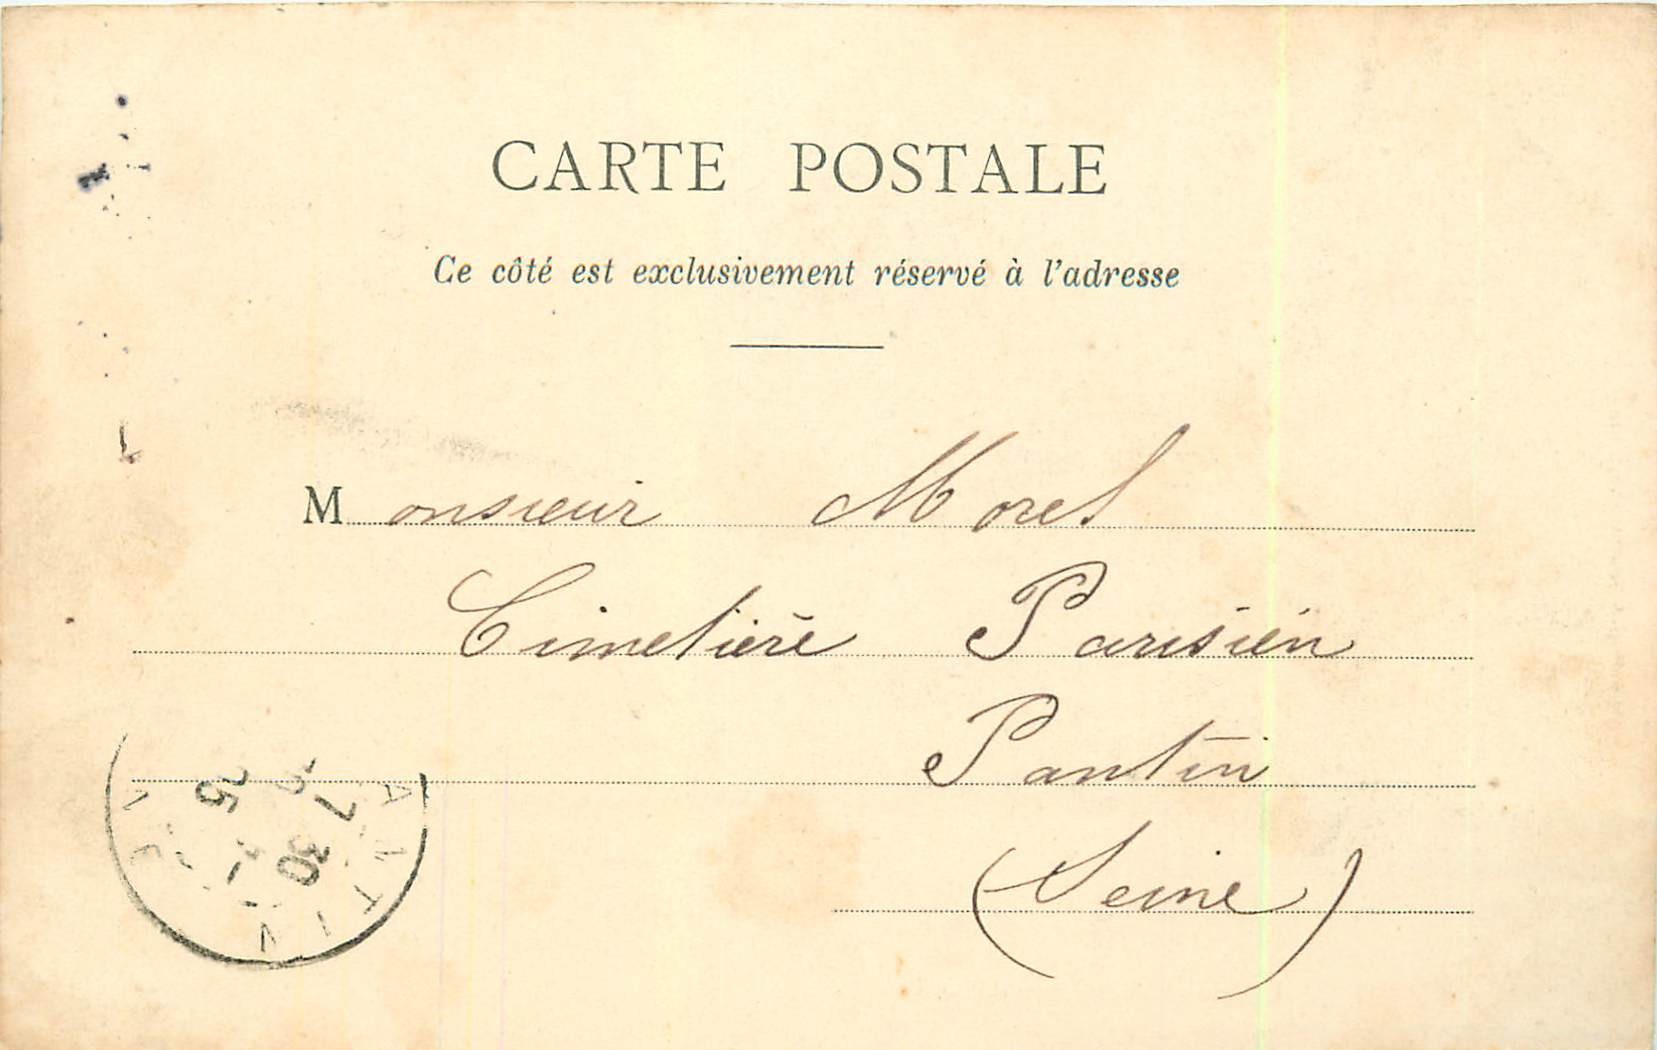 CARTE POSTALE
Ce côté est exclusivement réservé à l'adresse
Monsieur Morel
Cimetière Parisien
Pantin
(Seine)
7 30
25